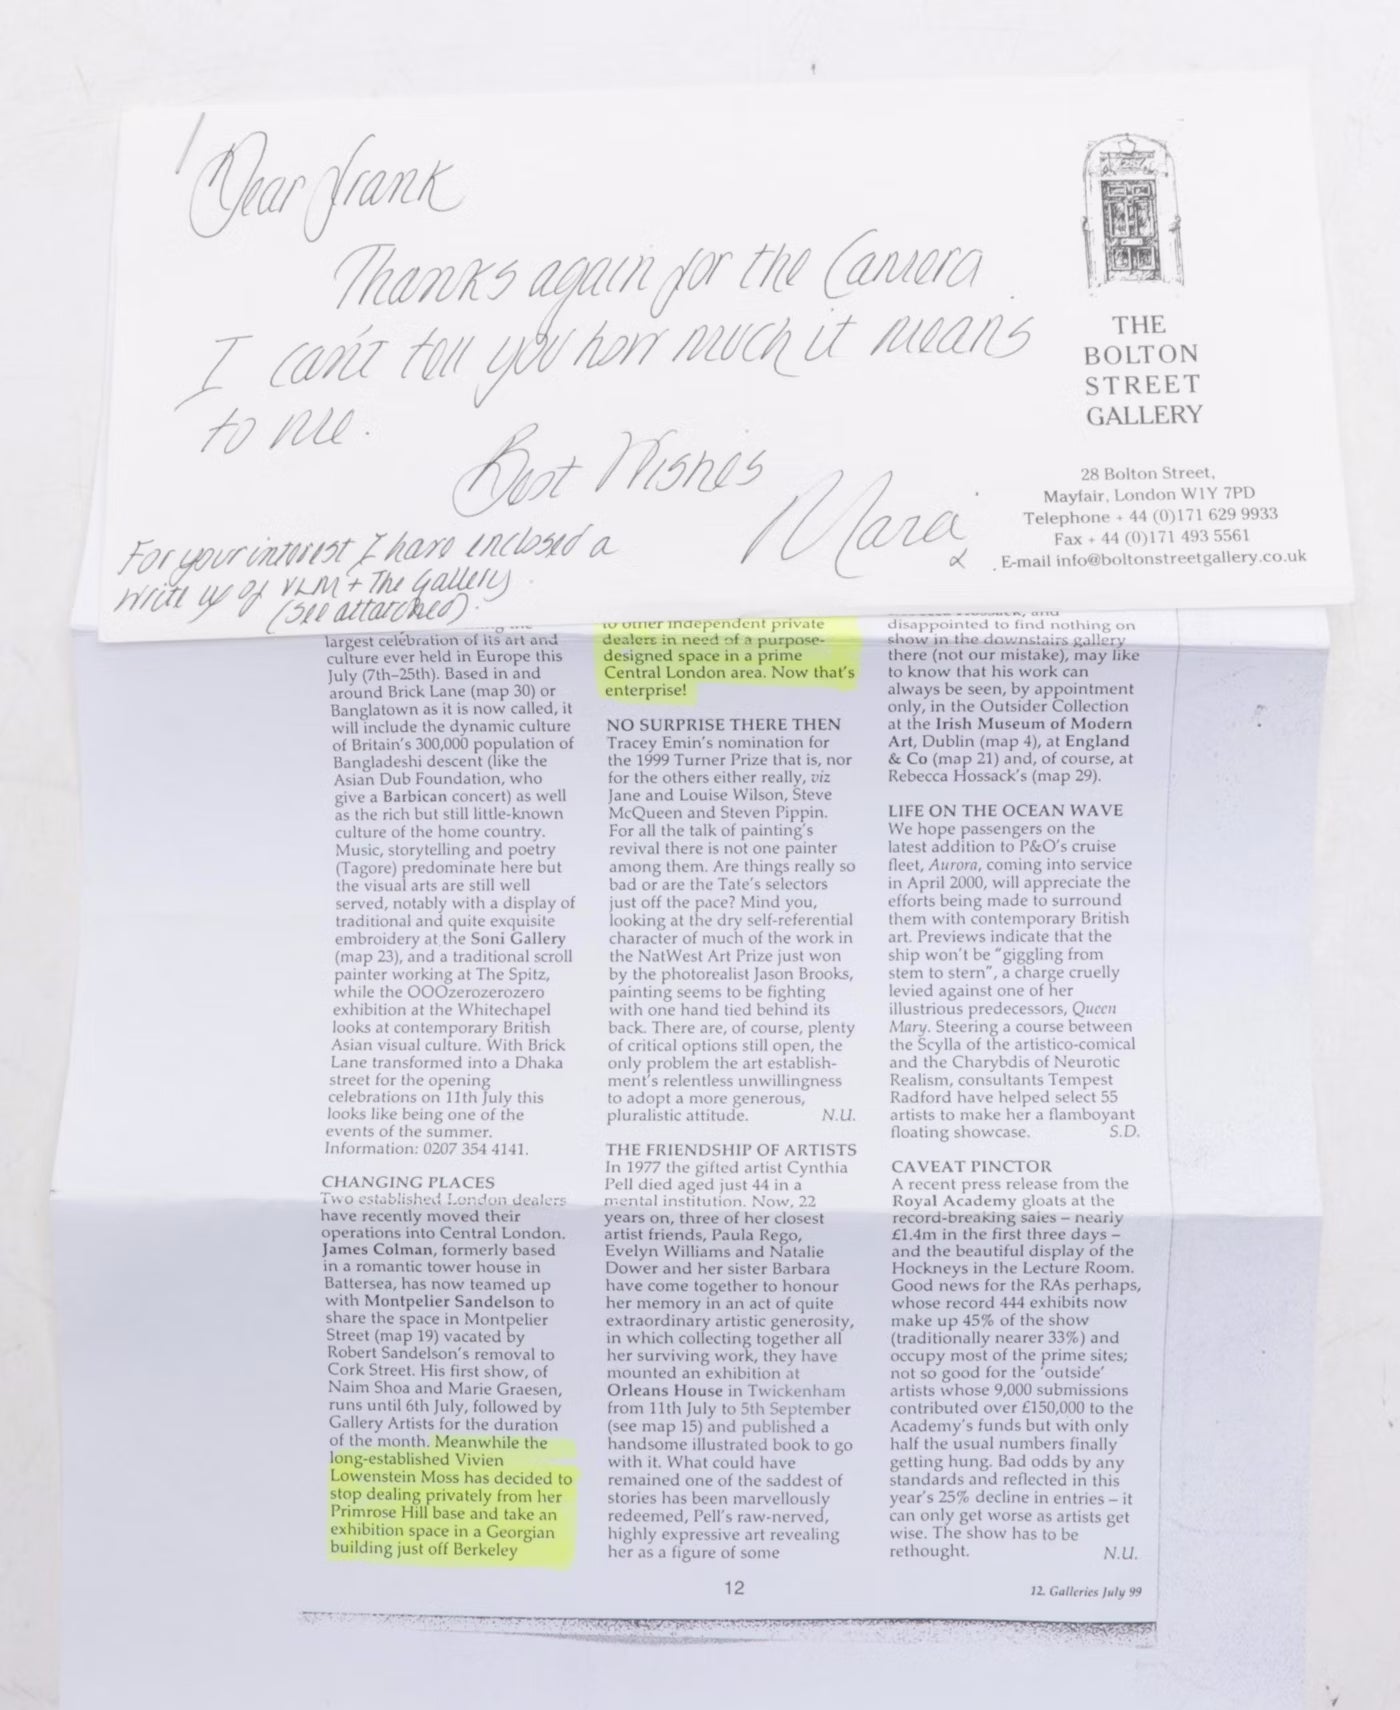 Dear Frank
Thanks again for the Camera.
I can't tell you how much it means
to me.
Best Wishes
Mara
x
For your interest I have enclosed a
write up of VLM + The Gallery
(see attatched).
THE
BOLTON
STREET
GALLERY
28 Bolton Street,
Mayfair, London W1Y 7PD
Telephone + 44 (0)171 629 9933
Fax + 44 (0)171 493 5561
E-mail info@boltonstreetgallery.co.uk
largest celebration of its art and
culture ever held in Europe this
July (7th–25th). Based in and
around Brick Lane (map 30) or
Banglatown as it is now called, it
will include the dynamic culture
of Britain's 300,000 population of
Bangladeshi descent (like the
Asian Dub Foundation, who
give a Barbican concert) as well
as the rich but still little-known
culture of the home country.
Music, storytelling and poetry
(Tagore) predominate here but
the visual arts are still well
served, notably with a display of
traditional and quite exquisite
embroidery at the Soni Gallery
(map 23), and a traditional scroll
painter working at The Spitz,
while the OOOzerozerozero
exhibition at the Whitechapel
looks at contemporary British
Asian visual culture. With Brick
Lane transformed into a Dhaka
street for the opening
celebrations on 11th July this
looks like being one of the
events of the summer.
Information: 0207 354 4141.
CHANGING PLACES
Two established London dealers
have recently moved their
operations into Central London.
James Colman, formerly based
in a romantic tower house in
Battersea, has now teamed up
with Montpelier Sandelson to
share the space in Montpelier
Street (map 19) vacated by
Robert Sandelson's removal to
Cork Street. His first show, of
Naim Shoa and Marie Graesen,
runs until 6th July, followed by
Gallery Artists for the duration
of the month. Meanwhile the
long-established Vivien
Lowenstein Moss has decided to
stop dealing privately from her
Primrose Hill base and take an
exhibition space in a Georgian
building just off Berkeley
to other independent private
dealers in need of a purpose-
designed space in a prime
Central London area. Now that's
enterprise!
NO SURPRISE THERE THEN
Tracey Emin's nomination for
the 1999 Turner Prize that is, nor
for the others either really, viz
Jane and Louise Wilson, Steve
McQueen and Steven Pippin.
For all the talk of painting's
revival there is not one painter
among them. Are things really so
bad or are the Tate's selectors
just off the pace? Mind you,
looking at the dry self-referential
character of much of the work in
the NatWest Art Prize just won
by the photorealist Jason Brooks,
painting seems to be fighting
with one hand tied behind its
back. There are, of course, plenty
of critical options still open, the
only problem the art establish-
ment's relentless unwillingness
to adopt a more generous,
pluralistic attitude. N.U.
THE FRIENDSHIP OF ARTISTS
In 1977 the gifted artist Cynthia
Pell died aged just 44 in a
mental institution. Now, 22
years on, three of her closest
artist friends, Paula Rego,
Evelyn Williams and Natalie
Dower and her sister Barbara
have come together to honour
her memory in an act of quite
extraordinary artistic generosity,
in which collecting together all
her surviving work, they have
mounted an exhibition at
Orleans House in Twickenham
from 11th July to 5th September
(see map 15) and published a
handsome illustrated book to go
with it. What could have
remained one of the saddest of
stories has been marvellously
redeemed, Pell's raw-nerved,
highly expressive art revealing
her as a figure of some
disappointed to find nothing on
show in the downstairs gallery
there (not our mistake), may like
to know that his work can
always be seen, by appointment
only, in the Outsider Collection
at the Irish Museum of Modern
Art, Dublin (map 4), at England
& Co (map 21) and, of course, at
Rebecca Hossack's (map 29).
LIFE ON THE OCEAN WAVE
We hope passengers on the
latest addition to P&O's cruise
fleet, Aurora, coming into service
in April 2000, will appreciate the
efforts being made to surround
them with contemporary British
art. Previews indicate that the
ship won't be "giggling from
stem to stern", a charge cruelly
levied against one of her
illustrious predecessors, Queen
Mary. Steering a course between
the Scylla of the artistico-comical
and the Charybdis of Neurotic
Realism, consultants Tempest
Radford have helped select 55
artists to make her a flamboyant
floating showcase. S.D.
CAVEAT PINCTOR
A recent press release from the
Royal Academy gloats at the
record-breaking sales – nearly
£1.4m in the first three days –
and the beautiful display of the
Hockneys in the Lecture Room.
Good news for the RAs perhaps,
whose record 444 exhibits now
make up 45% of the show
(traditionally nearer 33%) and
occupy most of the prime sites;
not so good for the 'outside'
artists whose 9,000 submissions
contributed over £150,000 to the
Academy's funds but with only
half the usual numbers finally
getting hung. Bad odds by any
standards and reflected in this
year's 25% decline in entries – it
can only get worse as artists get
wise. The show has to be
rethought. N.U.
12
12. Galleries July 99